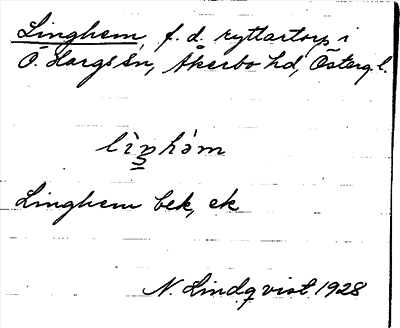 Linghem, f. d. ryttartorp i
Ö. Hargs sn, Åkerbo hd, Österg. l.
lìŋhə̀m
Linghem bek, ek
N. Lindqvist 1928